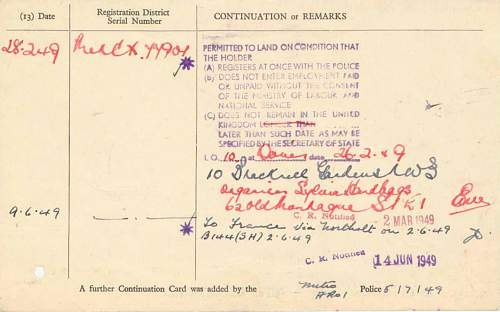 (13) Date
Registration District
Serial Number
CONTINUATION or REMARKS
28.2.49
PERMITTED TO LAND ON CONDITION THAT
THE HOLDER
(A) REGISTERS AT ONCE WITH THE POLICE
(B) DOES NOT ENTER EMPLOYMENT PAID
OR UNPAID WITHOUT THE CONSENT
OF THE MINISTRY OF LABOUR AND
NATIONAL SERVICE
(C) DOES NOT REMAIN IN THE UNITED
KINGDOM LONGER THAN
LATER THAN SUCH DATE AS MAY BE
SPECIFIED BY THE SECRETARY OF STATE
I.O. at Dover date 26.2.49
10 Bracknell Gardens NW3
62 Old Montague St E1
C. R. Notified 2 MAR 1949
9.6.49
To France via Northolt on 2.6.49
B144(SH) 2.6.49
C. R. Notified 14 JUN 1949
A further Continuation Card was added by the Metro Police 5/7/49
ARO1